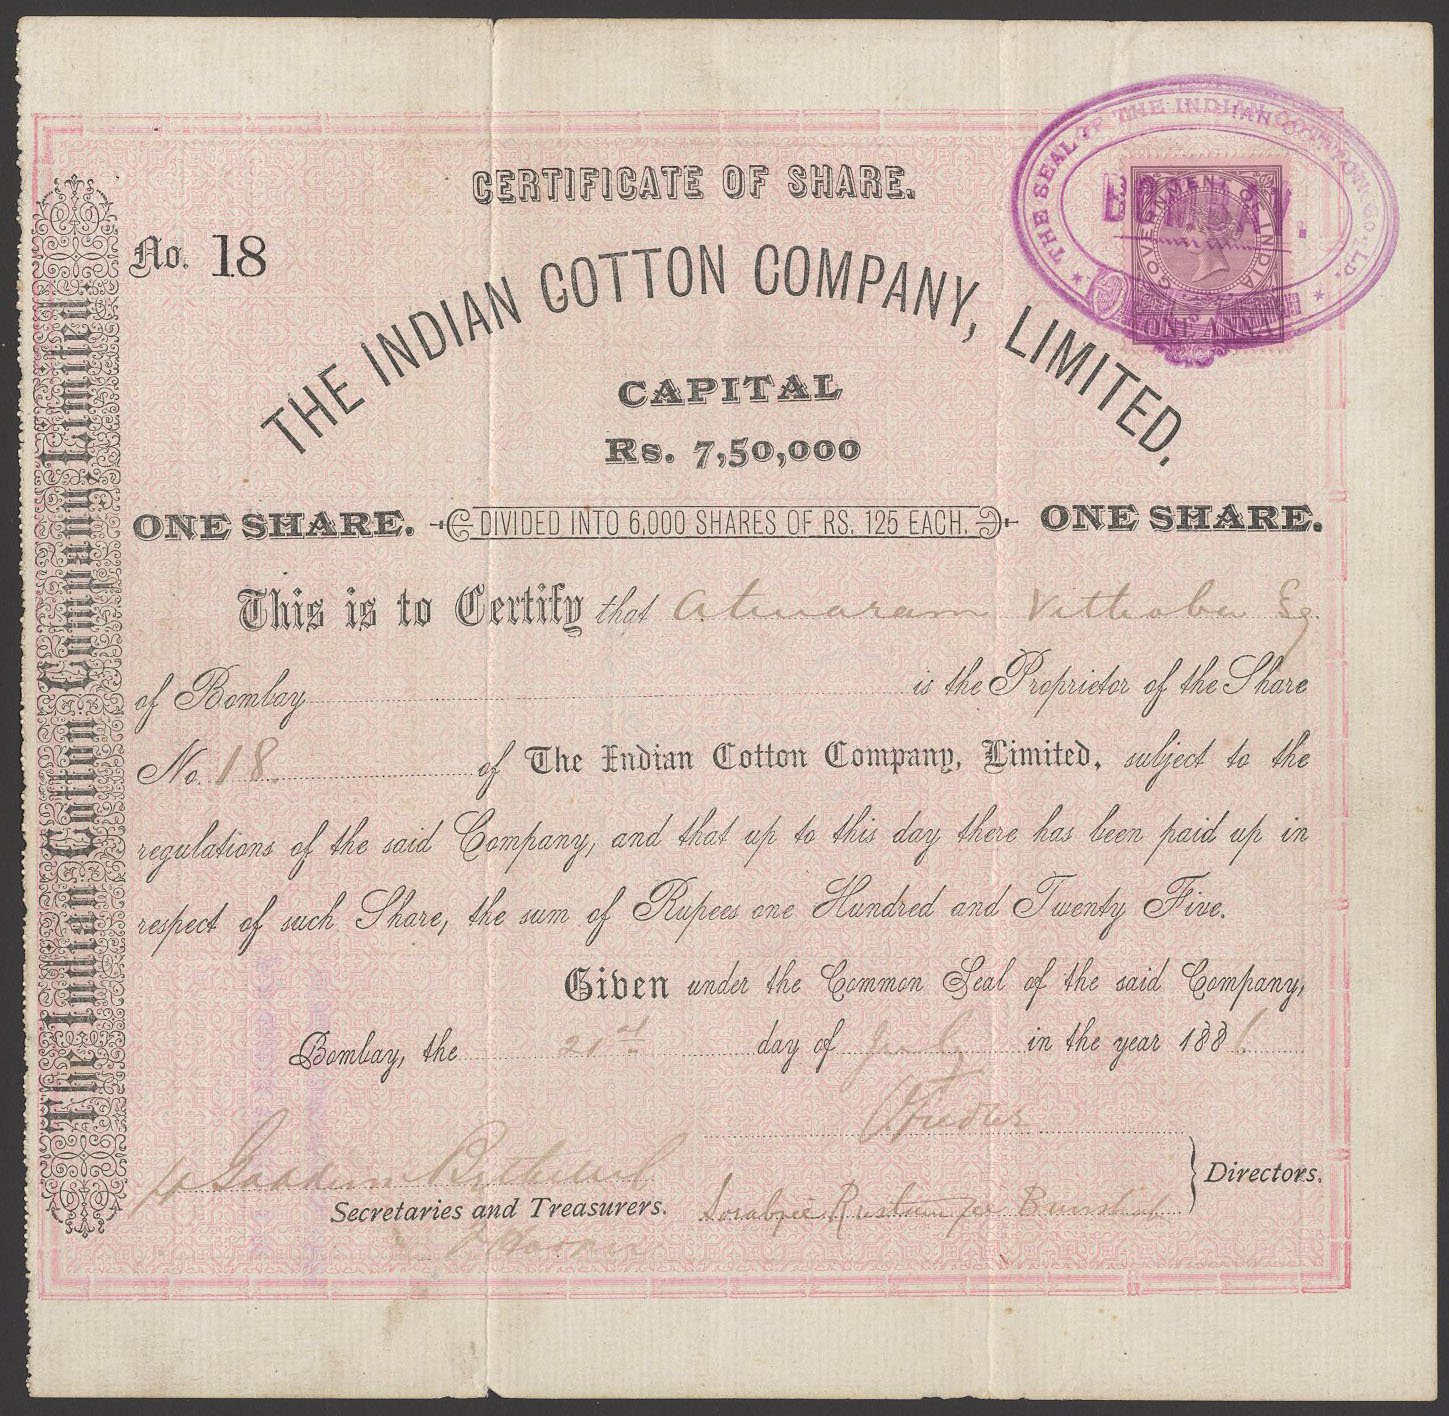 THE SEAL OF THE INDIAN COTTON CO. LD.
BOMBAY.
GOVERNMENT OF INDIA
ONE ANNA
CERTIFICATE OF SHARE.
No. 18
THE INDIAN COTTON COMPANY, LIMITED,
CAPITAL
Rs. 7,50,000
ONE SHARE. DIVIDED INTO 6,000 SHARES OF RS. 125 EACH. ONE SHARE.
This is to Certify that Atmaram Vithoba Esq
of Bombay is the Proprietor of the Share
No. 18 of The Indian Cotton Company, Limited, subject to the
regulations of the said Company, and that up to this day there has been paid up in
respect of such Share, the sum of Rupees one Hundred and Twenty Five.
Given under the Common Seal of the said Company,
Bombay, the 21st day of July in the year 1886
Directors.
Sorabjee Rustomjee
Secretaries and Treasurers.
The Indian Cotton Company, Limited.